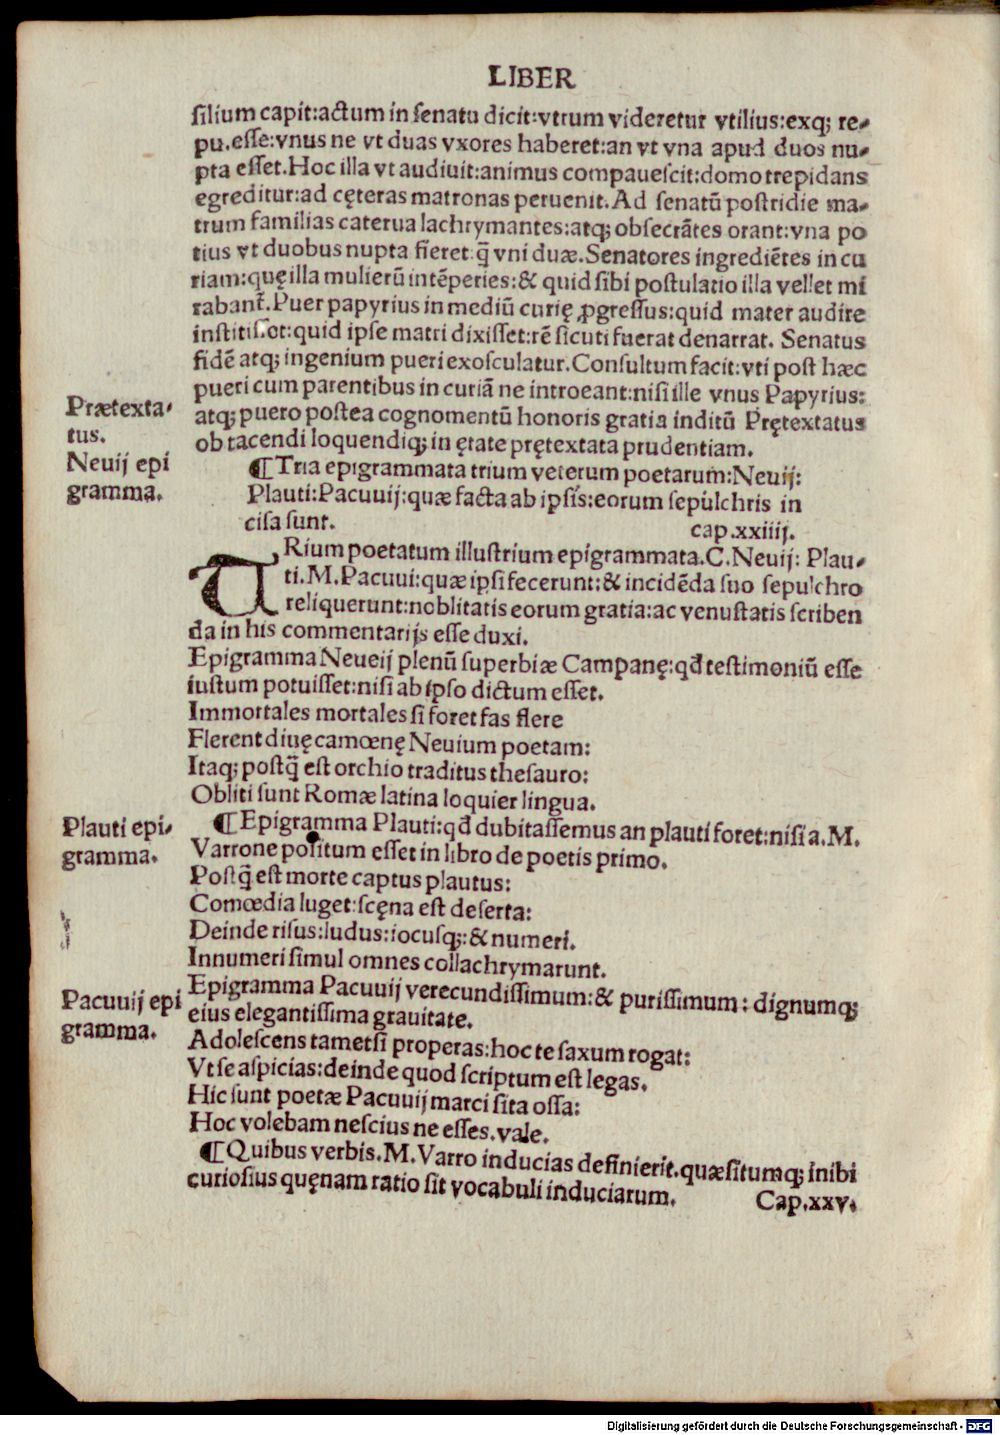 LIBER
silium capit:actum in senatu dicit:vtrum videretur vtilius:exq; re-
pu.esse:vnus ne vt duas vxores haberet:an vt vna apud duos nu-
pta esset.Hoc illa vt audiuit:animus compauescit:domo trepidans
egreditur:ad cęteras matronas peruenit.Ad senatū postridie ma-
trum familias caterua lachrymantes:atq; obsecrātes orant:vna po
tius vt duobus nupta fieret:q̄ vni duæ.Senatores ingrediētes in cu
riam:quę illa mulierū intēperies:& quid sibi postulatio illa vellet mi
rabant̄.Puer papyrius in mediū curię ꝓgressus:quid mater audire
institisset:quid ipse matri dixisset:rē sicuti fuerat denarrat. Senatus
fidē atq; ingenium pueri exosculatur.Consultum facit:vti post hæc
pueri cum parentibus in curiā ne introeant:nisi ille vnus Papyrius:
atq; puero postea cognomentū honoris gratia inditū Prętextatus
ob tacendi loquendiq; in ętate prętextata prudentiam.
Prætexta-
tus.
Neuij epi
gramma.
¶Tria epigrammata trium veterum poetarum:Neuij:
Plauti:Pacuuij:quæ facta ab ipsis:eorum sepulchris in
cisa sunt. cap.xxiiij.
TRium poetatum illustrium epigrammata.C.Neuij: Plau-
ti.M.Pacuui:quæ ipsi fecerunt:& incidēda suo sepulchro
reliquerunt:noblitatis eorum gratia:ac venustatis scriben
da in his commentarijs esse duxi.
Epigramma Neueij plenū superbiæ Campanę:qđ testimoniū esse
iustum potuisset:nisi ab ipso dictum esset.
Immortales mortales si foret fas flere
Flerent diuę camœnę Neuium poetam:
Itaq; postq̄ est orchio traditus thesauro:
Obliti sunt Romæ latina loquier lingua.
Plauti epi-
gramma.
¶Epigramma Plauti:qđ dubitassemus an plauti foret:nisi a.M.
Varrone positum esset in libro de poetis primo.
Postq̄ est morte captus plautus:
Comœdia luget:scęna est deserta:
Deinde risus:ludus:iocusq;:& numeri.
Innumeri simul omnes collachrymarunt.
Pacuuij epi
gramma.
Epigramma Pacuuij verecundissimum:& purissimum: dignumq;
eius elegantissima grauitate.
Adolescens tametsi properas:hoc te saxum rogat:
Vt se aspicias:deinde quod scriptum est legas.
Hic sunt poetæ Pacuuij marci sita ossa:
Hoc volebam nescius ne esses.vale.
¶Quibus verbis.M.Varro inducias definierit.quæsitumq; inibi
curiosius quęnam ratio sit vocabuli induciarum. Cap.xxv.
Digitalisierung gefördert durch die Deutsche Forschungsgemeinschaft - DFG